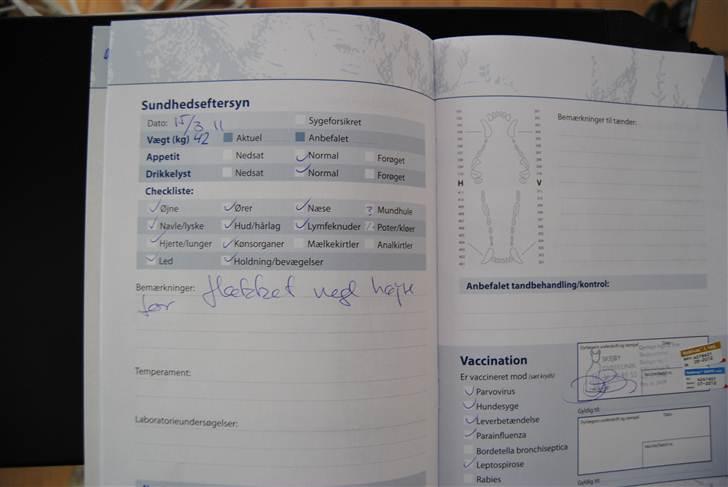 Sundhedseftersyn
Dato: 15/3 11 Sygeforsikret
Vægt (kg) 42 Aktuel Anbefalet
Appetit Nedsat Normal Forøget
Drikkelyst Nedsat Normal Forøget
Checkliste:
Øjne Ører Næse ? Mundhule
Navle/lyske Hud/hårlag Lymfeknuder ? Poter/kløer
Hjerte/lunger Kønsorganer Mælkekirtler Analkirtler
Led Holdning/bevægelser
Bemærkninger: flækket negl højre
for
Temperament:
Laboratorieundersøgelser:
Bemærkninger til tænder:
H V
Anbefalet tandbehandling/kontrol:
Vaccination
Er vaccineret mod (sæt kryds):
Parvovirus
Hundesyge
Leverbetændelse
Parainfluenza
Bordetella bronchiseptica
Leptospirose
Rabies
Dyrlægens underskrift og stempel
SKEJBY
Gyldig til:
Dyrlægens underskrift og stempel Dato:
Gyldig til: